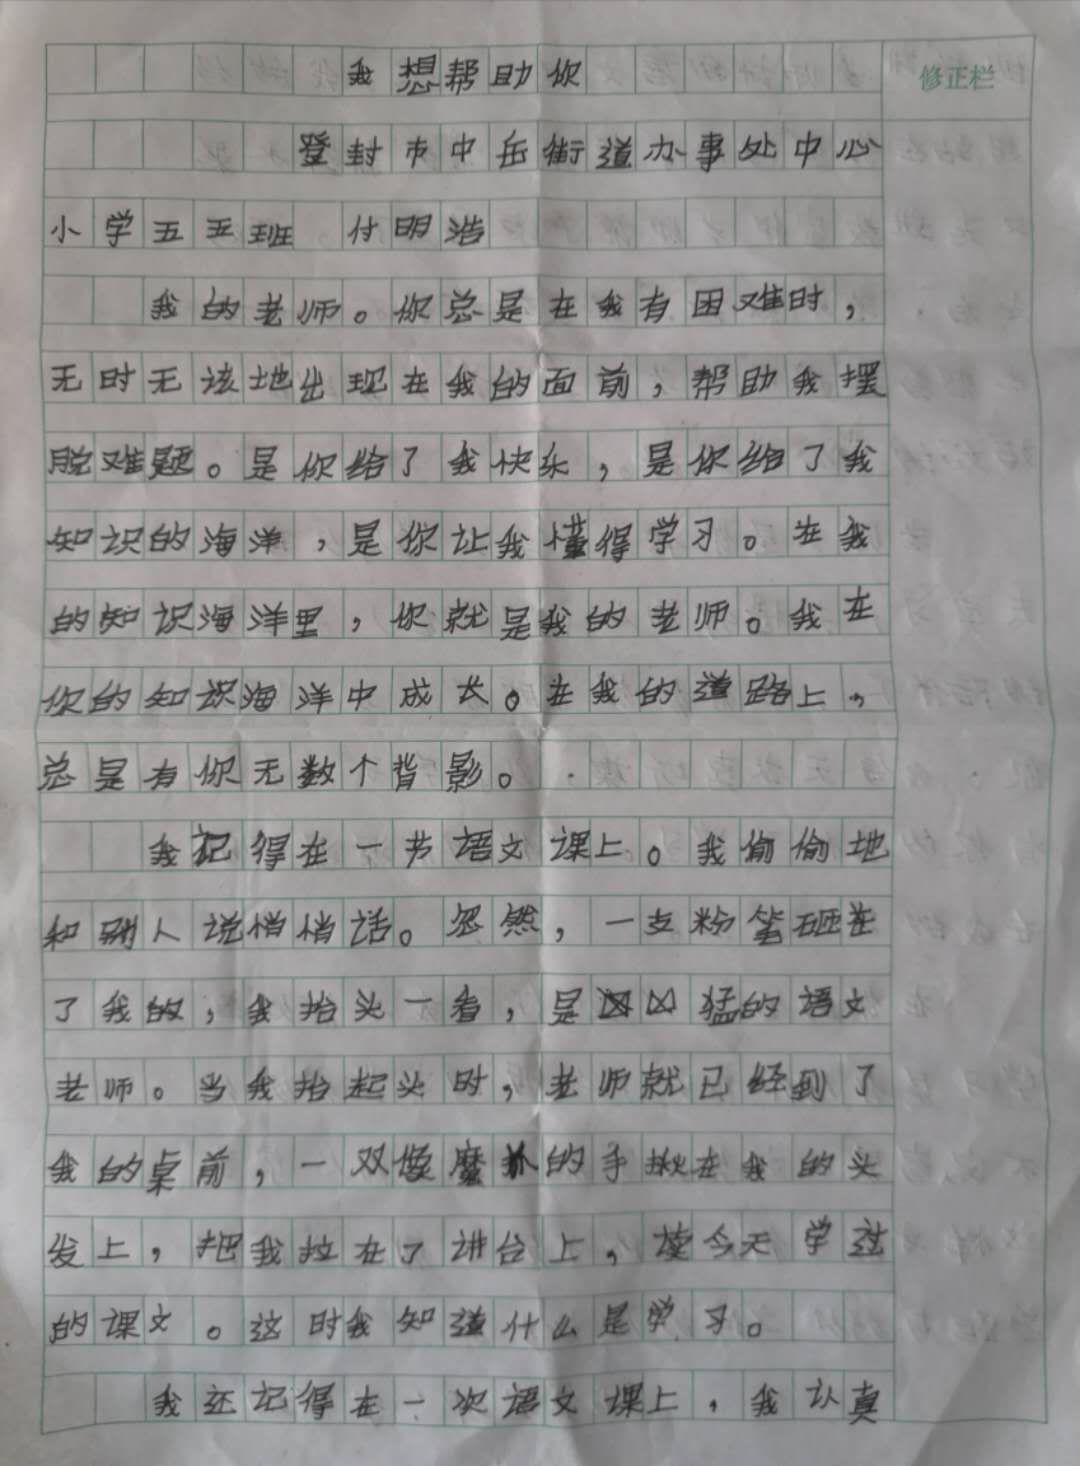 我想帮助你
修正栏
登封市中岳街道办事处中心
小学五五班 付明浩
我的老师。你总是在我有困难时，
无时无该地出现在我的面前，帮助我摆
脱难题。是你给了我快乐，是你给了我
知识的海洋，是你让我懂得学习。在我
的知识海洋里，你就是我的老师。我在
你的知识海洋中成长。在我的道路上，
总是有你无数个背影。
我记得在一节语文课上。我偷偷地
和别人说悄悄话。忽然，一支粉笔砸在
了我的，我抬头一看，是凶猛的语文
老师。当我抬起头时，老师就已经到了
我的桌前，一双像魔爪的手揪在我的头
发上，把我拉在了讲台上，读今天学过
的课文。这时我知道什么是学习。
我还记得在一次语文课上，我认真